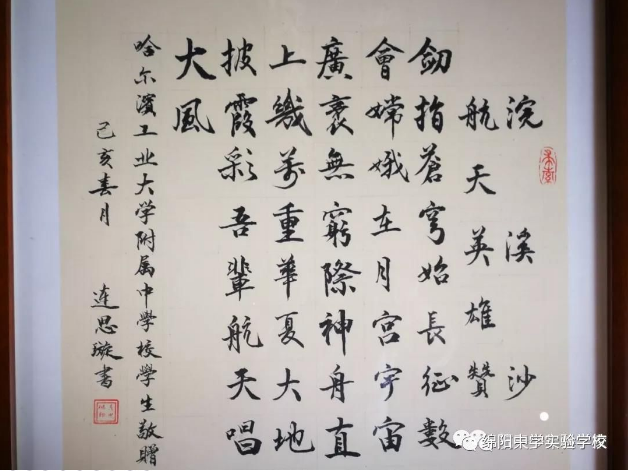 浣溪沙
航天英雄贊
劍指蒼穹始長征數
會嫦娥在月宮宇宙
廣袤無窮際神舟直
上幾萬重華夏大地
披霞彩吾輩航天唱
大風
哈尔濱工业大学附属中學校學生敬贈
己亥春月 連思璇書
绵阳東学实验学校